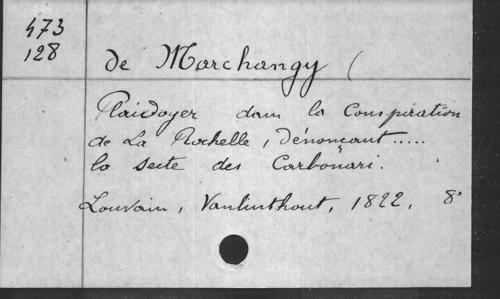 473
128
de Marchangy (
Plaidoyer dans la Conspiration
de La Rochelle, dénonçant.....
la secte des Carbonari.
Louvain, Vanlinthout, 1822, 8°